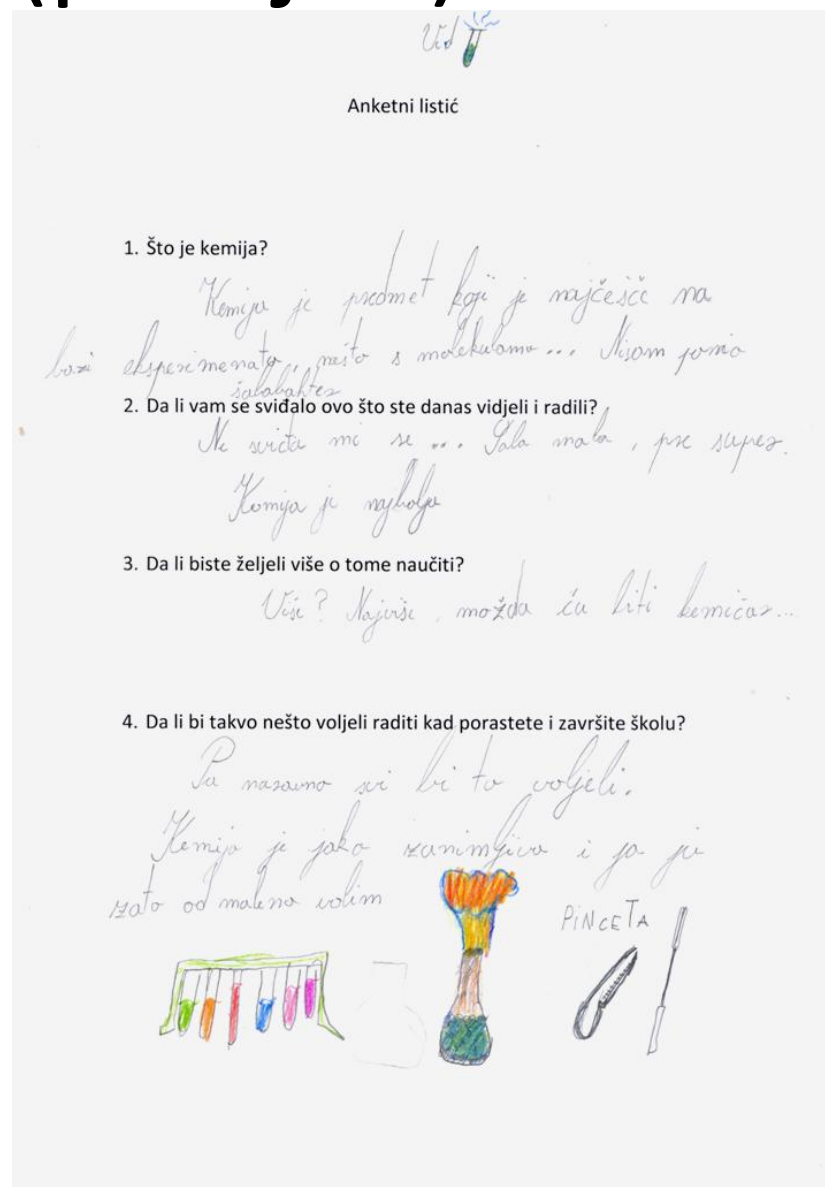 Vid
Anketni listić
1. Što je kemija?
Kemija je predmet koji je najčešće na
bazi eksperimenata, nešto s molekulama... Nisam
šalabahter
2. Da li vam se sviđalo ovo što ste danas vidjeli i radili?
Ne sviđa mi se ... Šala mala, pre super.
Kemija je najbolja
3. Da li biste željeli više o tome naučiti?
Više? Najviše, možda ću biti kemičar...
4. Da li bi takvo nešto voljeli raditi kad porastete i završite školu?
Pa naravno svi bi to voljeli.
Kemija je jako zanimljiva i ja ju
zato od malena volim
PINCETA